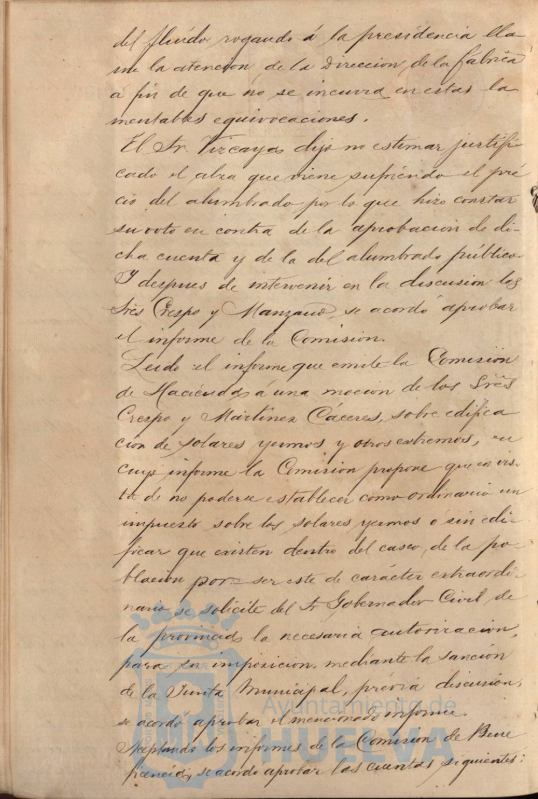 del fluido rogando á la presidencia lla
me la atencion de la Direccion de la fabrica
a fin de que no se incurra en estas la
mentables equivocaciones.
El Sr. Vizcaya dijo no estimar justifi
cado el alza que viene sufriendo el pré
cio del alumbrado por lo que hizo constar
su voto en contra de la aprobacion de di-
cha cuenta y de la del alumbrado público.
Y despues de intervenir en la discusion los
Srēs Crespo y Manzano, se acordó aprobar
el informe de la Comision.
Leido el informe que emite la Comision
de Haciénda á una mocion de los Srēs
Crespo y Mártinez Cáceres, sobre edifica
cion de solares yermos y otros estremos, en
cuyo informe la Comision propone que en vis-
ta de no poderse establecer como ordinario un
impuesto sobre los solares yermos o sin edi-
ficar que existen dentro del casco de la po-
blacion por ser este de carácter extraordi-
nario se solicite del Sr Gobernador Civil de
la provincia la necesaria autorizacion,
para su imposicion mediante la sancion
de la Junta Municipal, prévia discusion,
se acordó aprobar el mencionado informe.
Aceptando los informes de la Comision de Bene
ficencia, se acordo aprobar las cuentas siguientes:
Ayuntamiento de
HUELVA